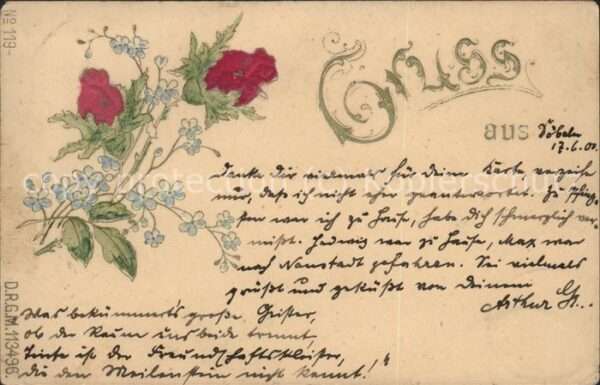 No 119-
Gruss
aus Döbeln
17.6.01.
Danke Dir vielmals für deine Kart, verzeihe
mir, daß ich nicht eher geantwortet. Zu Pfing-
sten war ich zu Hause, habe dich schmerzlich ver-
mißt. Hedwig war zu Hause, Max war
nach Neustadt gefahren. Sei vielmals
grüßt und geküßt von deinem
Arthur
Was bekümmert's große Geister,
ob der Raum uns beide trennt,
Tinte ist der Freundschaftskleister,
die den Meilenstein nicht kennt!"
D.R.G.M. 113496.